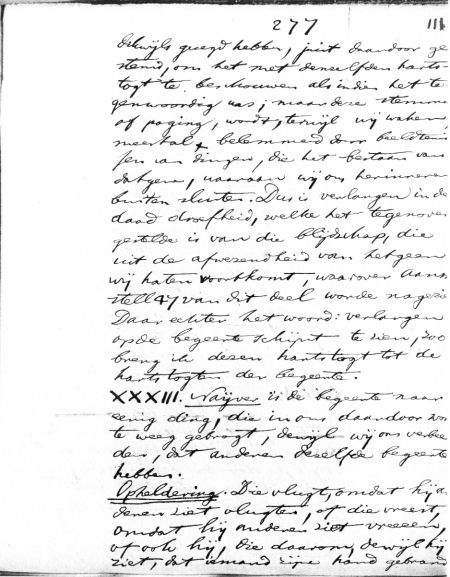 277
dikwijls gevoegd hebben, juist daardoor ge
stemd, om het met denzelfden harts-
togt te beschouwen als indien het te
genwoordig was; maar deze stemming
of poging, wordt, terwijl wij waken,
meestal belemmerd door beeldtenis
sen van dingen, die het bestaan van
datgene, waaraan wij ons herinneren
buiten sluiten. Dus is verlangen inder
daad droefheid, welke het tegenover
gestelde is van die blijdschap, die
uit de afwezendheid van hetgeen
wij haten voortkomt, waarover Aan
stell 47 van dit deel worde nagezien
Daar echter het woord: verlangen
op de begeerte schijnt te zien, zoo
breng ik dezen hartstogt tot de
hartstogten der begeerte.
XXXIII. Naijver is de begeerte naar
eenig ding, die in ons daardoor wor
te weeg gebragt, dewijl wij ons verbee
den, dat anderen dezelfde begeerte
hebben.
Opheldering. Die vlugt, omdat hij an
deren ziet vlugten, of die vreest,
omdat hij anderen ziet vreezen,
of ook hij, die daarom, dewijl hij
ziet, dat iemand zijne hand gebrand